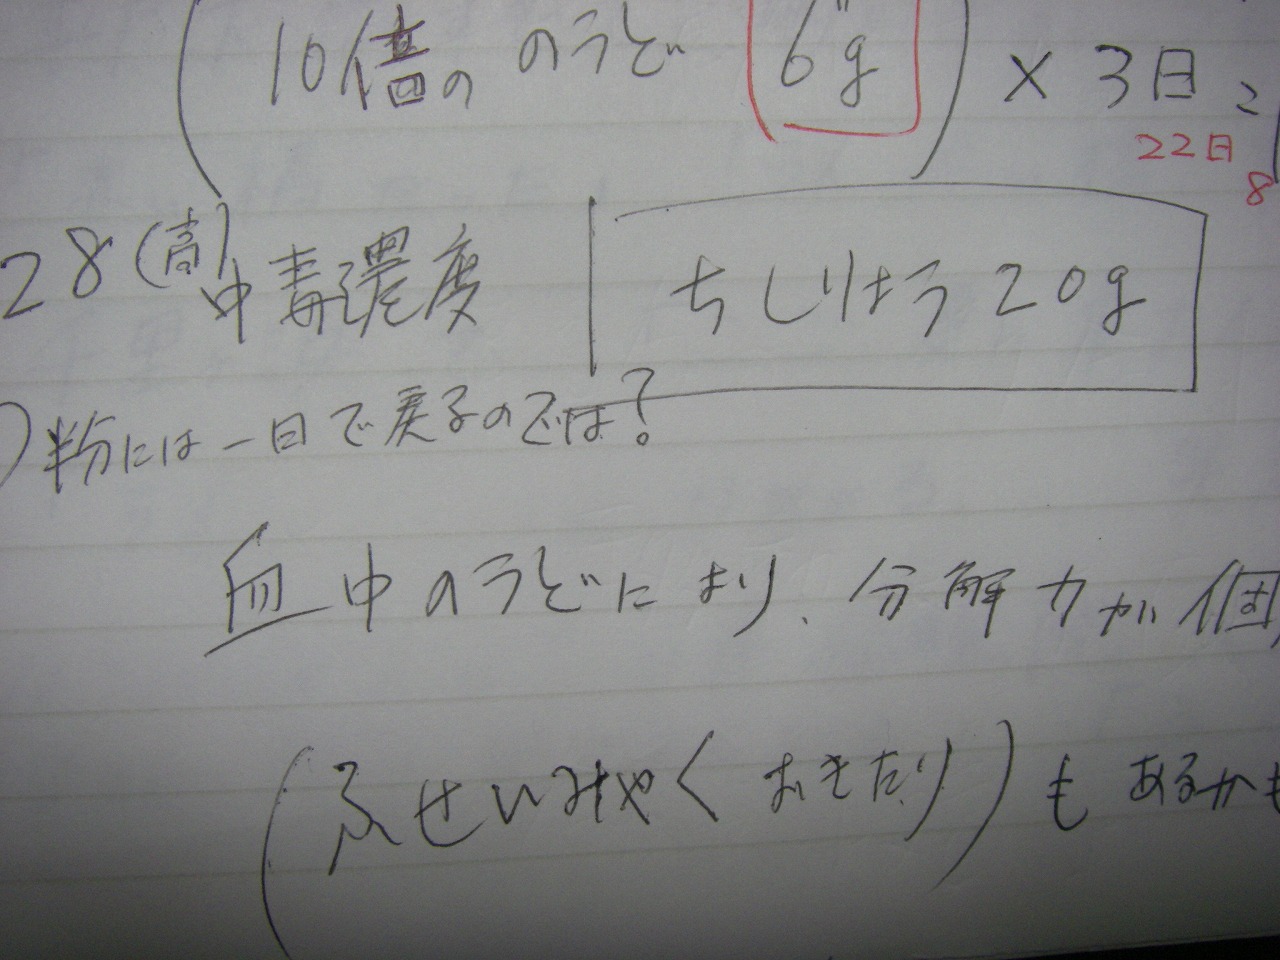 (10倍の のうど 6g) × 3日 =
22日
8
28(高)中毒濃度 ちしりょう 20g
)粉には一日で戻るのでは?
血中のうどにより、分解力が個
(ふせいみゃくおきたり)もあるかも